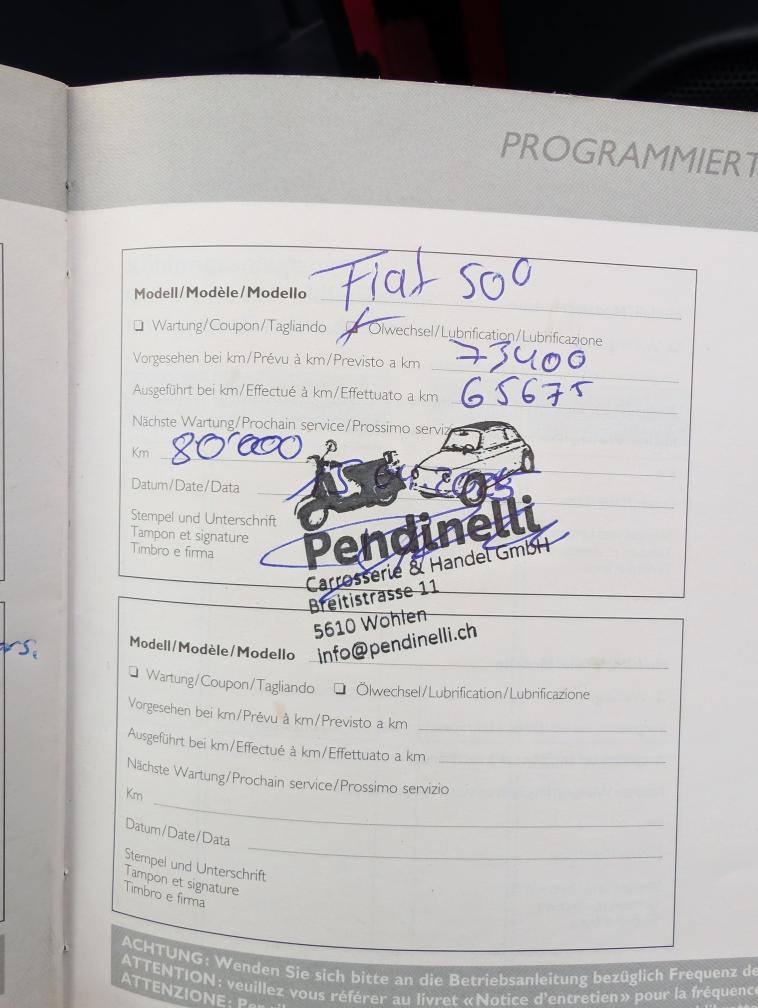 PROGRAMMIERT
Modell/Modèle/Modello Fiat 500
❏ Wartung/Coupon/Tagliando ❏ Ölwechsel/Lubrification/Lubrificazione
Vorgesehen bei km/Prévu à km/Previsto a km 73400
Ausgeführt bei km/Effectué à km/Effettuato a km 65675
Nächste Wartung/Prochain service/Prossimo serviz
Km 80'000
Datum/Date/Data
Stempel und Unterschrift
Tampon et signature
Timbro e firma
Pendinelli
Carrosserie & Handel GmbH
Breitistrasse 11
5610 Wohlen
info@pendinelli.ch
Modell/Modèle/Modello
❏ Wartung/Coupon/Tagliando ❏ Ölwechsel/Lubrification/Lubrificazione
Vorgesehen bei km/Prévu à km/Previsto a km
Ausgeführt bei km/Effectué à km/Effettuato a km
Nächste Wartung/Prochain service/Prossimo servizio
Km
Datum/Date/Data
Stempel und Unterschrift
Tampon et signature
Timbro e firma
ACHTUNG: Wenden Sie sich bitte an die Betriebsanleitung bezüglich Frequenz de
ATTENTION: veuillez vous référer au livret «Notice d'entretien» pour la fréquence
ATTENZIONE: